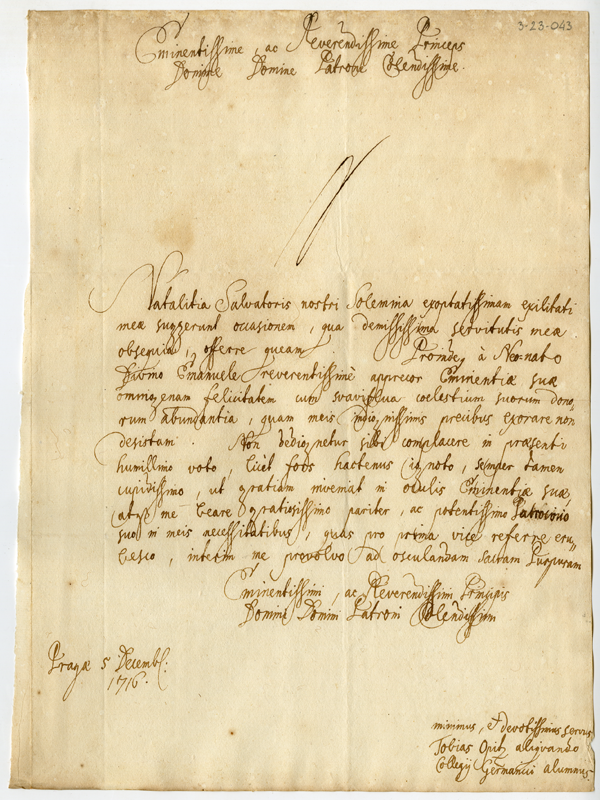 3-23-043
Eminentissime, ac Reverendissime Princeps
Domine Domine Patrone Colendissime.
Natalitia Salvatoris nostri Solemnia exoptatissimam exilitati
meæ suggerunt occasionem, qua demississima servitutis meæ
obsequia, offerre queam. Proinde, à Neo-nato
Divino Emanuele reverentissimè apprecor Eminentiæ suæ
omnigenam felicitatem cum suaviflua coelestium suorum dono,,
rum abundantia, quam meis indignissimis precibus exorare non
desistam. Non dedignetur sibi complacere in præsenti
humillimo voto, licet hactenus ignoto, semper tamen
cupidissimo, ut gratiam inveniat in oculis Eminentiæ suæ,
atque me beare gratiosissimo pariter, ac potentissimo Patrocinio
suo in meis necessitatibus, quas pro prima vice referre eru,,
besco, interim me provolvo ad osculandam sacram Purpuram
Eminentissimi, ac Reverendissimi Principis
Domini Domini Patroni Colendissimi
Pragæ 5 Decembr:
1716.
minimus, et devotissimus servus
Tobias Opitz aliquando
Collegij Germanici alumnus.